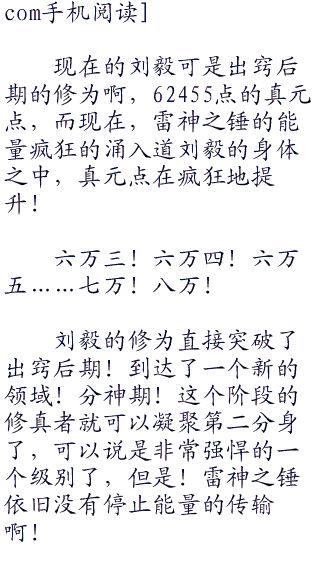 com手机阅读]
现在的刘毅可是出窍后
期的修为啊，62455点的真元
点，而现在，雷神之锤的能
量疯狂的涌入道刘毅的身体
之中，真元点在疯狂地提
升！
六万三！六万四！六万
五……七万！八万！
刘毅的修为直接突破了
出窍后期！到达了一个新的
领域！分神期！这个阶段的
修真者就可以凝聚第二分身
了，可以说是非常强悍的一
个级别了，但是！雷神之锤
依旧没有停止能量的传输
啊！